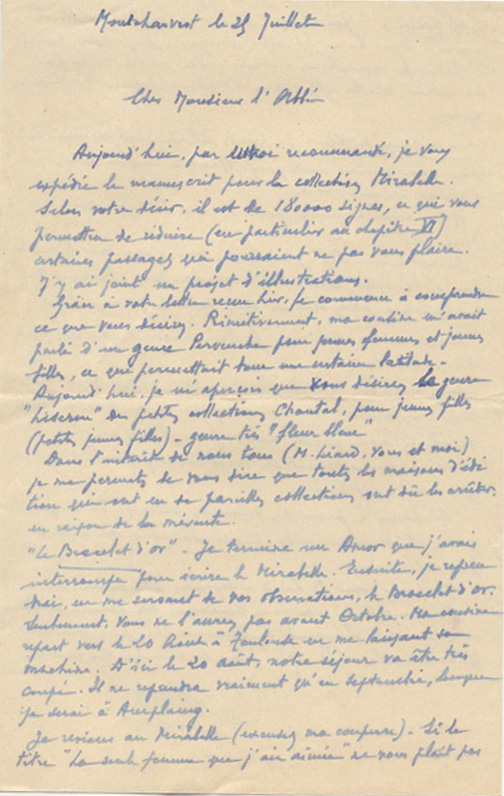 Montcharvot le 25 Juillet
Cher Monsieur l'Abbé
Aujourd'hui, par envoi recommandé, je vous
expédie le manuscrit pour la collection Mirabelle.
Selon votre désir, il est de 180000 signes, ce qui vous
permettra de réduire (en particulier au chapitre VI)
certains passages qui pourraient ne pas vous plaire.
J'y ai joint un projet d'illustrations.
Grâce à votre lettre reçue hier, je commence à comprendre
ce que vous désirez. Primitivement, ma cousine m'avait
parlé d'un genre Pervenche pour jeunes femmes et jeunes
filles, ce qui permettait donc une certaine latitude.
Aujourd'hui, je m'aperçois que vous désirez le genre
"Liseron" des petites collections Chantal, pour jeunes filles
(petites jeunes filles) - genre très "fleur bleue"
Dans l'intérêt de nous tous (M. Liard, vous et moi)
je me permets de vous dire que toutes les maisons d'édi
tion qui ont eu de pareilles collections ont dû les arrêter,
en raison de la mévente.
"Le Bracelet d'or" - Je termine un Amor que j'avais
interrompu pour écrire le Mirabelle. Ensuite, je repren
drai, en me servant de vos observations, le Bracelet d'or.
Seulement, vous ne l'aurez pas avant Octobre. Ma cousine
repart vers le 20 Août à Toulouse en me laissant sa
machine. D'ici le 20 août, notre séjour va être très
coupé. Il ne reprendra vraiment qu'en septembre, lorsque
je serai à
Je reviens au Mirabelle (excusez ma coupure) - Si le
titre "La seule femme que j'aie aimée" ne vous plaît pas